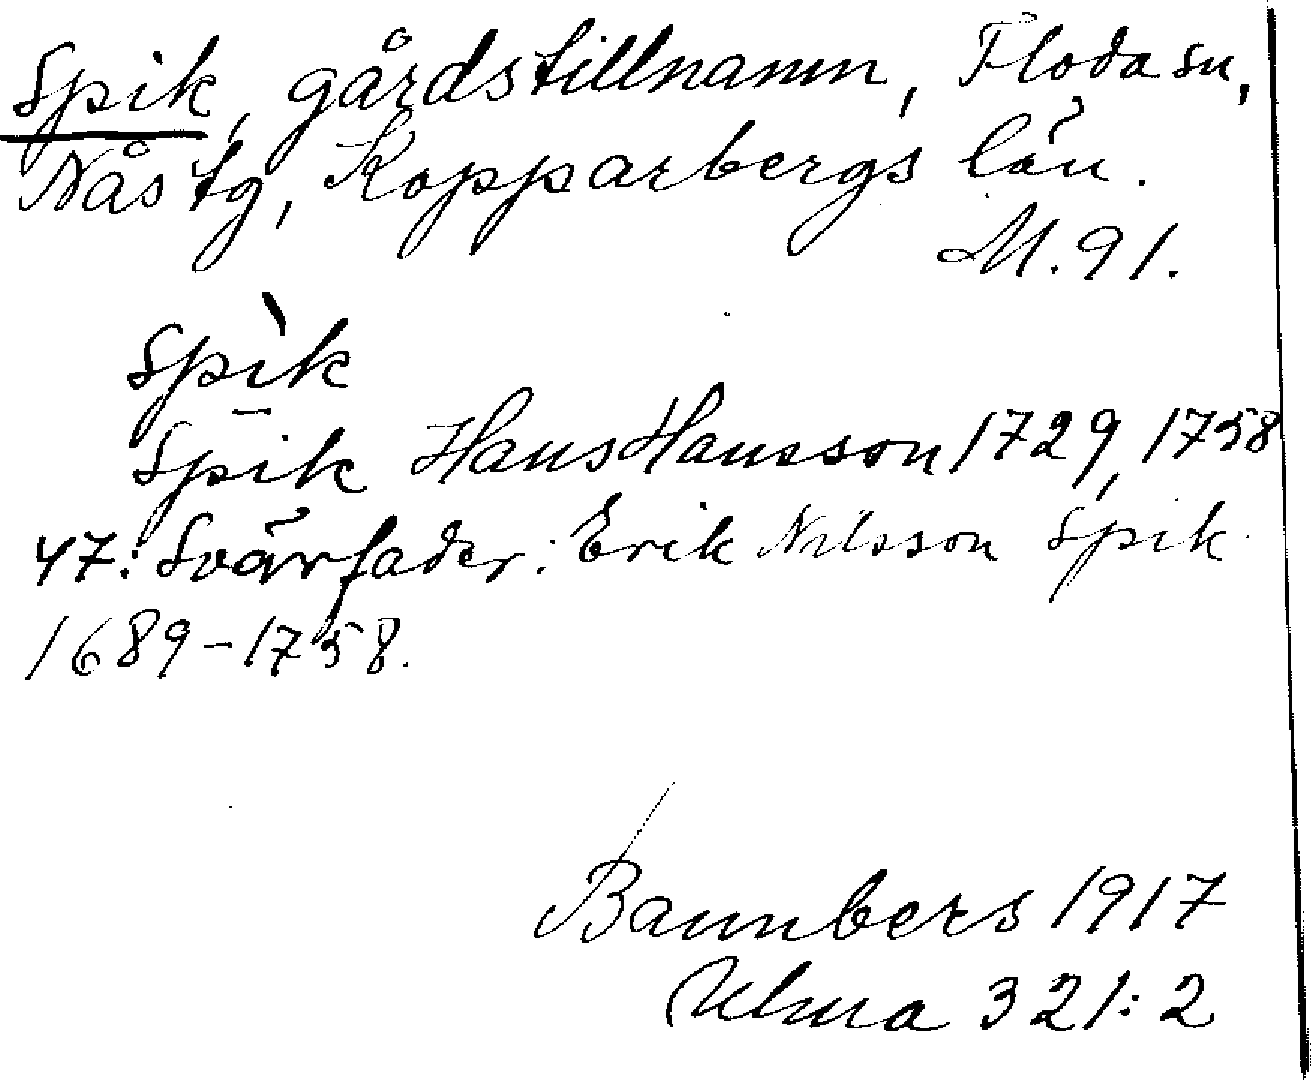 Spik, gårdstillnamn, Floda sn,
Nås tg, Kopparbergs län.
M. 91.
Spìk
Spik Hans Hansson 1729, 1758
47: Svärfader: Erik Nilsson Spik
1689-1758.
Bannbers 1917
Ulma 321:2